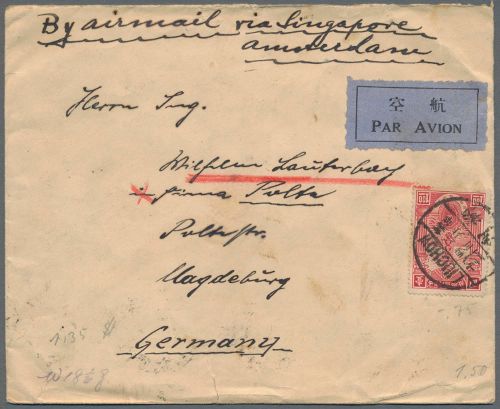 By airmail via Singapore
Amsterdam
空航
PAR AVION
Herrn Ing.
Wilhelm Lauterbach
Firma Polte
Poltestr.
Magdeburg
Germany
1.35 $
1.50